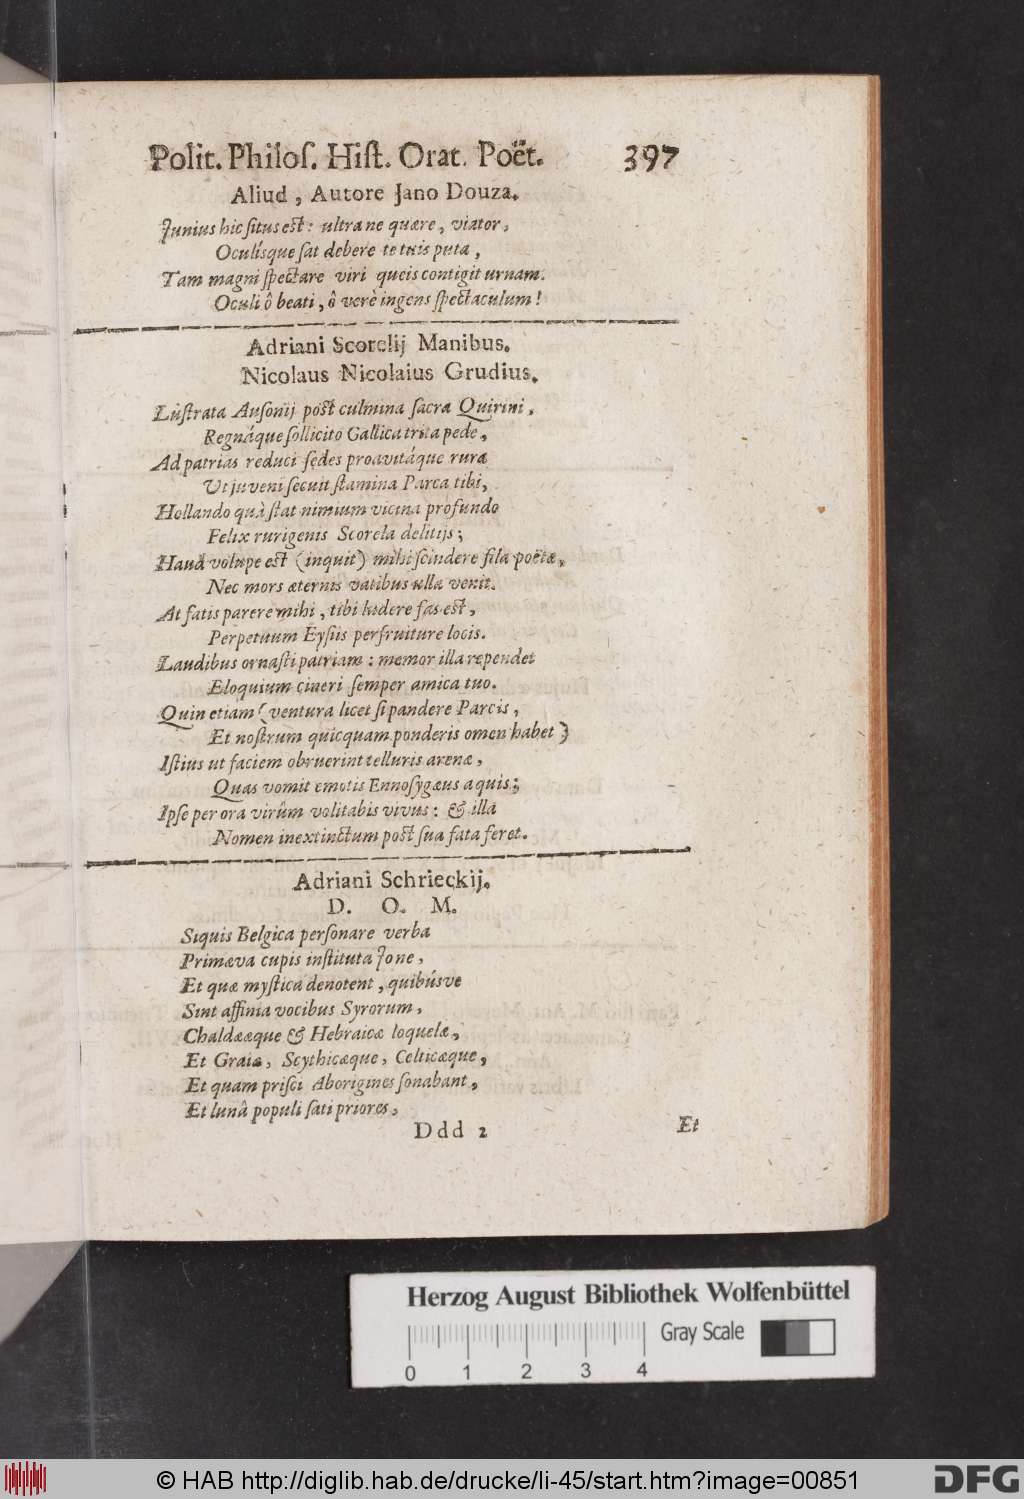 Polit. Philoſ. Hiſt. Orat. Poët. 397
Aliud, Autore Jano Douza.
Junius hic ſitus eſt: ultra ne quære, viator,
Oculíſque ſat debere te tuis puta,
Tam magni ſpectare viri queis contigit urnam.
Oculi ô beati, ô verè ingens ſpectaculum!
Adriani Scorelij Manibus.
Nicolaus Nicolaius Grudius.
Luſtrata Auſonij poſt culmina ſacra Quirini,
Regnáque ſollicito Gallica trita pede,
Ad patrias reduci ſedes proavitáque rura
Ut juveni ſecuit ſtamina Parca tibi,
Hollando quà ſtat nimium vicina profundo
Felix rurigenis Scorela delitijs;
Haud volupe eſt (inquit) mihi ſcindere fila poëtæ,
Nec mors æternis vatibus ulla venit.
At fatis parere mihi, tibi ludere fas eſt,
Perpetuum Eyſiis perfruiture locis.
Laudibus ornaſti patriam: memor illa rependet
Eloquium cineri ſemper amica tuo.
Quin etiam (ventura licet ſi pandere Parcis,
Et noſtrum quicquam ponderis omen habet)
Iſtius ut faciem obruerint telluris arenæ,
Quas vomit emotis Ennoſygæus aquis;
Ipſe per ora virûm volitabis vivus: & illa
Nomen inextinctum poſt ſua fata feret.
Adriani Schrieckij.
D. O. M.
Siquis Belgica perſonare verba
Primæva cupis inſtituta Jone,
Et quæ myſtica denotent, quibúsve
Sint affinia vocibus Syrorum,
Chaldææque & Hebraicæ loquelæ,
Et Graiæ, Scythicæque, Celticæque,
Et quam priſci Aborigines ſonabant,
Et lunâ populi ſati priores,
Ddd 2 Et
Herzog August Bibliothek Wolfenbüttel
Gray Scale
0 1 2 3 4
© HAB http://diglib.hab.de/drucke/li-45/start.htm?image=00851
DFG